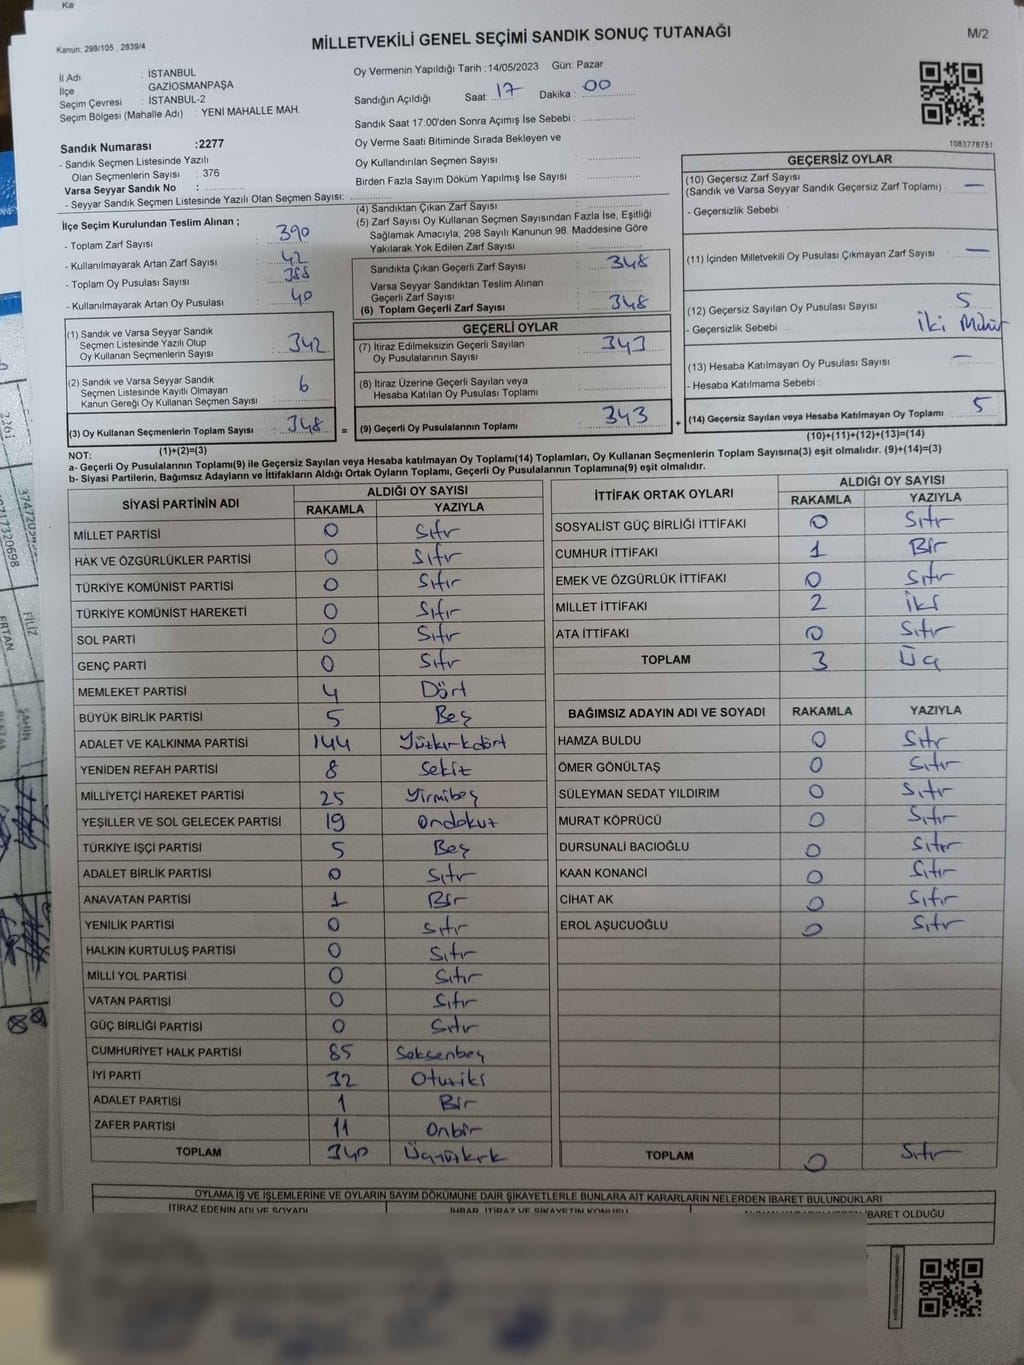 Ka
Kanun: 298/105 , 2839/4
MİLLETVEKİLİ GENEL SEÇİMİ SANDIK SONUÇ TUTANAĞI
M/2
İl Adı : İSTANBUL
İlçe : GAZİOSMANPAŞA
Seçim Çevresi : İSTANBUL-2
Seçim Bölgesi (Mahalle Adı) : YENİ MAHALLE MAH.
Oy Vermenin Yapıldığı Tarih :14/05/2023 Gün: Pazar
Sandığın Açıldığı Saat: 17 Dakika : 00
Sandık Saat 17:00'den Sonra Açımış İse Sebebi :
Oy Verme Saati Bitiminde Sırada Bekleyen ve
Oy Kullandırılan Seçmen Sayısı :
Birden Fazla Sayım Döküm Yapılmış İse Sayısı :
1083778751
Sandık Numarası :2277
- Sandık Seçmen Listesinde Yazılı
Olan Seçmenlerin Sayısı : 376
Varsa Seyyar Sandık No :
- Seyyar Sandık Seçmen Listesinde Yazılı Olan Seçmen Sayısı:
İlçe Seçim Kurulundan Teslim Alınan ;
- Toplam Zarf Sayısı : 390
- Kullanılmayarak Artan Zarf Sayısı : 42
- Toplam Oy Pusulası Sayısı : 388
- Kullanılmayarak Artan Oy Pusulası : 40
(1) Sandık ve Varsa Seyyar Sandık
Seçmen Listesinde Yazılı Olup
Oy Kullanan Seçmenlerin Sayısı : 342
(2) Sandık ve Varsa Seyyar Sandık
Seçmen Listesinde Kayıtlı Olmayan
Kanun Gereği Oy Kullanan Seçmen Sayısı : 6
(3) Oy Kullanan Seçmenlerin Toplam Sayısı : 348
(1)+(2)=(3)
(4) Sandıktan Çıkan Zarf Sayısı :
(5) Zarf Sayısı Oy Kullanan Seçmen Sayısından Fazla İse, Eşitliği
Sağlamak Amacıyla; 298 Sayılı Kanunun 98. Maddesine Göre
Yakılarak Yok Edilen Zarf Sayısı :
Sandıkta Çıkan Geçerli Zarf Sayısı : 348
Varsa Seyyar Sandıktan Teslim Alınan
Geçerli Zarf Sayısı :
(6) Toplam Geçerli Zarf Sayısı : 348
GEÇERLİ OYLAR
(7) İtiraz Edilmeksizin Geçerli Sayılan
Oy Pusulalarının Sayısı : 343
(8) İtiraz Üzerine Geçerli Sayılan veya
Hesaba Katılan Oy Pusulası Toplamı :
= (9) Geçerli Oy Pusulalarının Toplamı : 343 +
GEÇERSİZ OYLAR
(10) Geçersiz Zarf Sayısı
(Sandık ve Varsa Seyyar Sandık Geçersiz Zarf Toplamı) : —
- Geçersizlik Sebebi :
(11) İçinden Milletvekili Oy Pusulası Çıkmayan Zarf Sayısı : —
(12) Geçersiz Sayılan Oy Pusulası Sayısı : 5
- Geçersizlik Sebebi : İki Mühür
(13) Hesaba Katılmayan Oy Pusulası Sayısı : —
- Hesaba Katılmama Sebebi :
(14) Geçersiz Sayılan veya Hesaba Katılmayan Oy Toplamı : 5
(10)+(11)+(12)+(13)=(14)
NOT:
a- Geçerli Oy Pusulalarının Toplamı(9) ile Geçersiz Sayılan veya Hesaba katılmayan Oy Toplamı(14) Toplamları, Oy Kullanan Seçmenlerin Toplam Sayısına(3) eşit olmalıdır. (9)+(14)=(3)
b- Siyasi Partilerin, Bağımsız Adayların ve İttifakların Aldığı Ortak Oyların Toplamı, Geçerli Oy Pusulalarının Toplamına(9) eşit olmalıdır.
SİYASİ PARTİNİN ADI ALDIĞI OY SAYISI
RAKAMLA YAZIYLA
MİLLET PARTİSİ 0 Sıfır
HAK VE ÖZGÜRLÜKLER PARTİSİ 0 Sıfır
TÜRKİYE KOMÜNİST PARTİSİ 0 Sıfır
TÜRKİYE KOMÜNİST HAREKETİ 0 Sıfır
SOL PARTİ 0 Sıfır
GENÇ PARTİ 0 Sıfır
MEMLEKET PARTİSİ 4 Dört
BÜYÜK BİRLİK PARTİSİ 5 Beş
ADALET VE KALKINMA PARTİSİ 144 Yüzkırkdört
YENİDEN REFAH PARTİSİ 8 Sekiz
MİLLİYETÇİ HAREKET PARTİSİ 25 Yirmibeş
YEŞİLLER VE SOL GELECEK PARTİSİ 19 Ondokuz
TÜRKİYE İŞÇİ PARTİSİ 5 Beş
ADALET BİRLİK PARTİSİ 0 Sıfır
ANAVATAN PARTİSİ 1 Bir
YENİLİK PARTİSİ 0 Sıfır
HALKIN KURTULUŞ PARTİSİ 0 Sıfır
MİLLİ YOL PARTİSİ 0 Sıfır
VATAN PARTİSİ 0 Sıfır
GÜÇ BİRLİĞİ PARTİSİ 0 Sıfır
CUMHURİYET HALK PARTİSİ 85 Seksenbeş
İYİ PARTİ 32 Otuziki
ADALET PARTİSİ 1 Bir
ZAFER PARTİSİ 11 Onbir
TOPLAM 340 Üçyüzkırk
İTTİFAK ORTAK OYLARI ALDIĞI OY SAYISI
RAKAMLA YAZIYLA
SOSYALİST GÜÇ BİRLİĞİ İTTİFAKI 0 Sıfır
CUMHUR İTTİFAKI 1 Bir
EMEK VE ÖZGÜRLÜK İTTİFAKI 0 Sıfır
MİLLET İTTİFAKI 2 İki
ATA İTTİFAKI 0 Sıfır
TOPLAM 3 Üç
BAĞIMSIZ ADAYIN ADI VE SOYADI RAKAMLA YAZIYLA
HAMZA BULDU 0 Sıfır
ÖMER GÖNÜLTAŞ 0 Sıfır
SÜLEYMAN SEDAT YILDIRIM 0 Sıfır
MURAT KÖPRÜCÜ 0 Sıfır
DURSUNALİ BACIOĞLU 0 Sıfır
KAAN KONANCİ 0 Sıfır
CİHAT AK 0 Sıfır
EROL AŞUCUOĞLU 0 Sıfır
TOPLAM 0 Sıfır
OYLAMA İŞ VE İŞLEMLERİNE VE OYLARIN SAYIM DÖKÜMÜNE DAİR ŞİKAYETLERLE BUNLARA AİT KARARLARIN NELERDEN İBARET BULUNDUKLARI
İTİRAZ EDENİN ADI VE SOYADI İHBAR, İTİRAZ VE ŞİKAYETİN KONUSU İBARET OLDUĞU
2261
FİLİZ
ERTAN
ŞAHİN